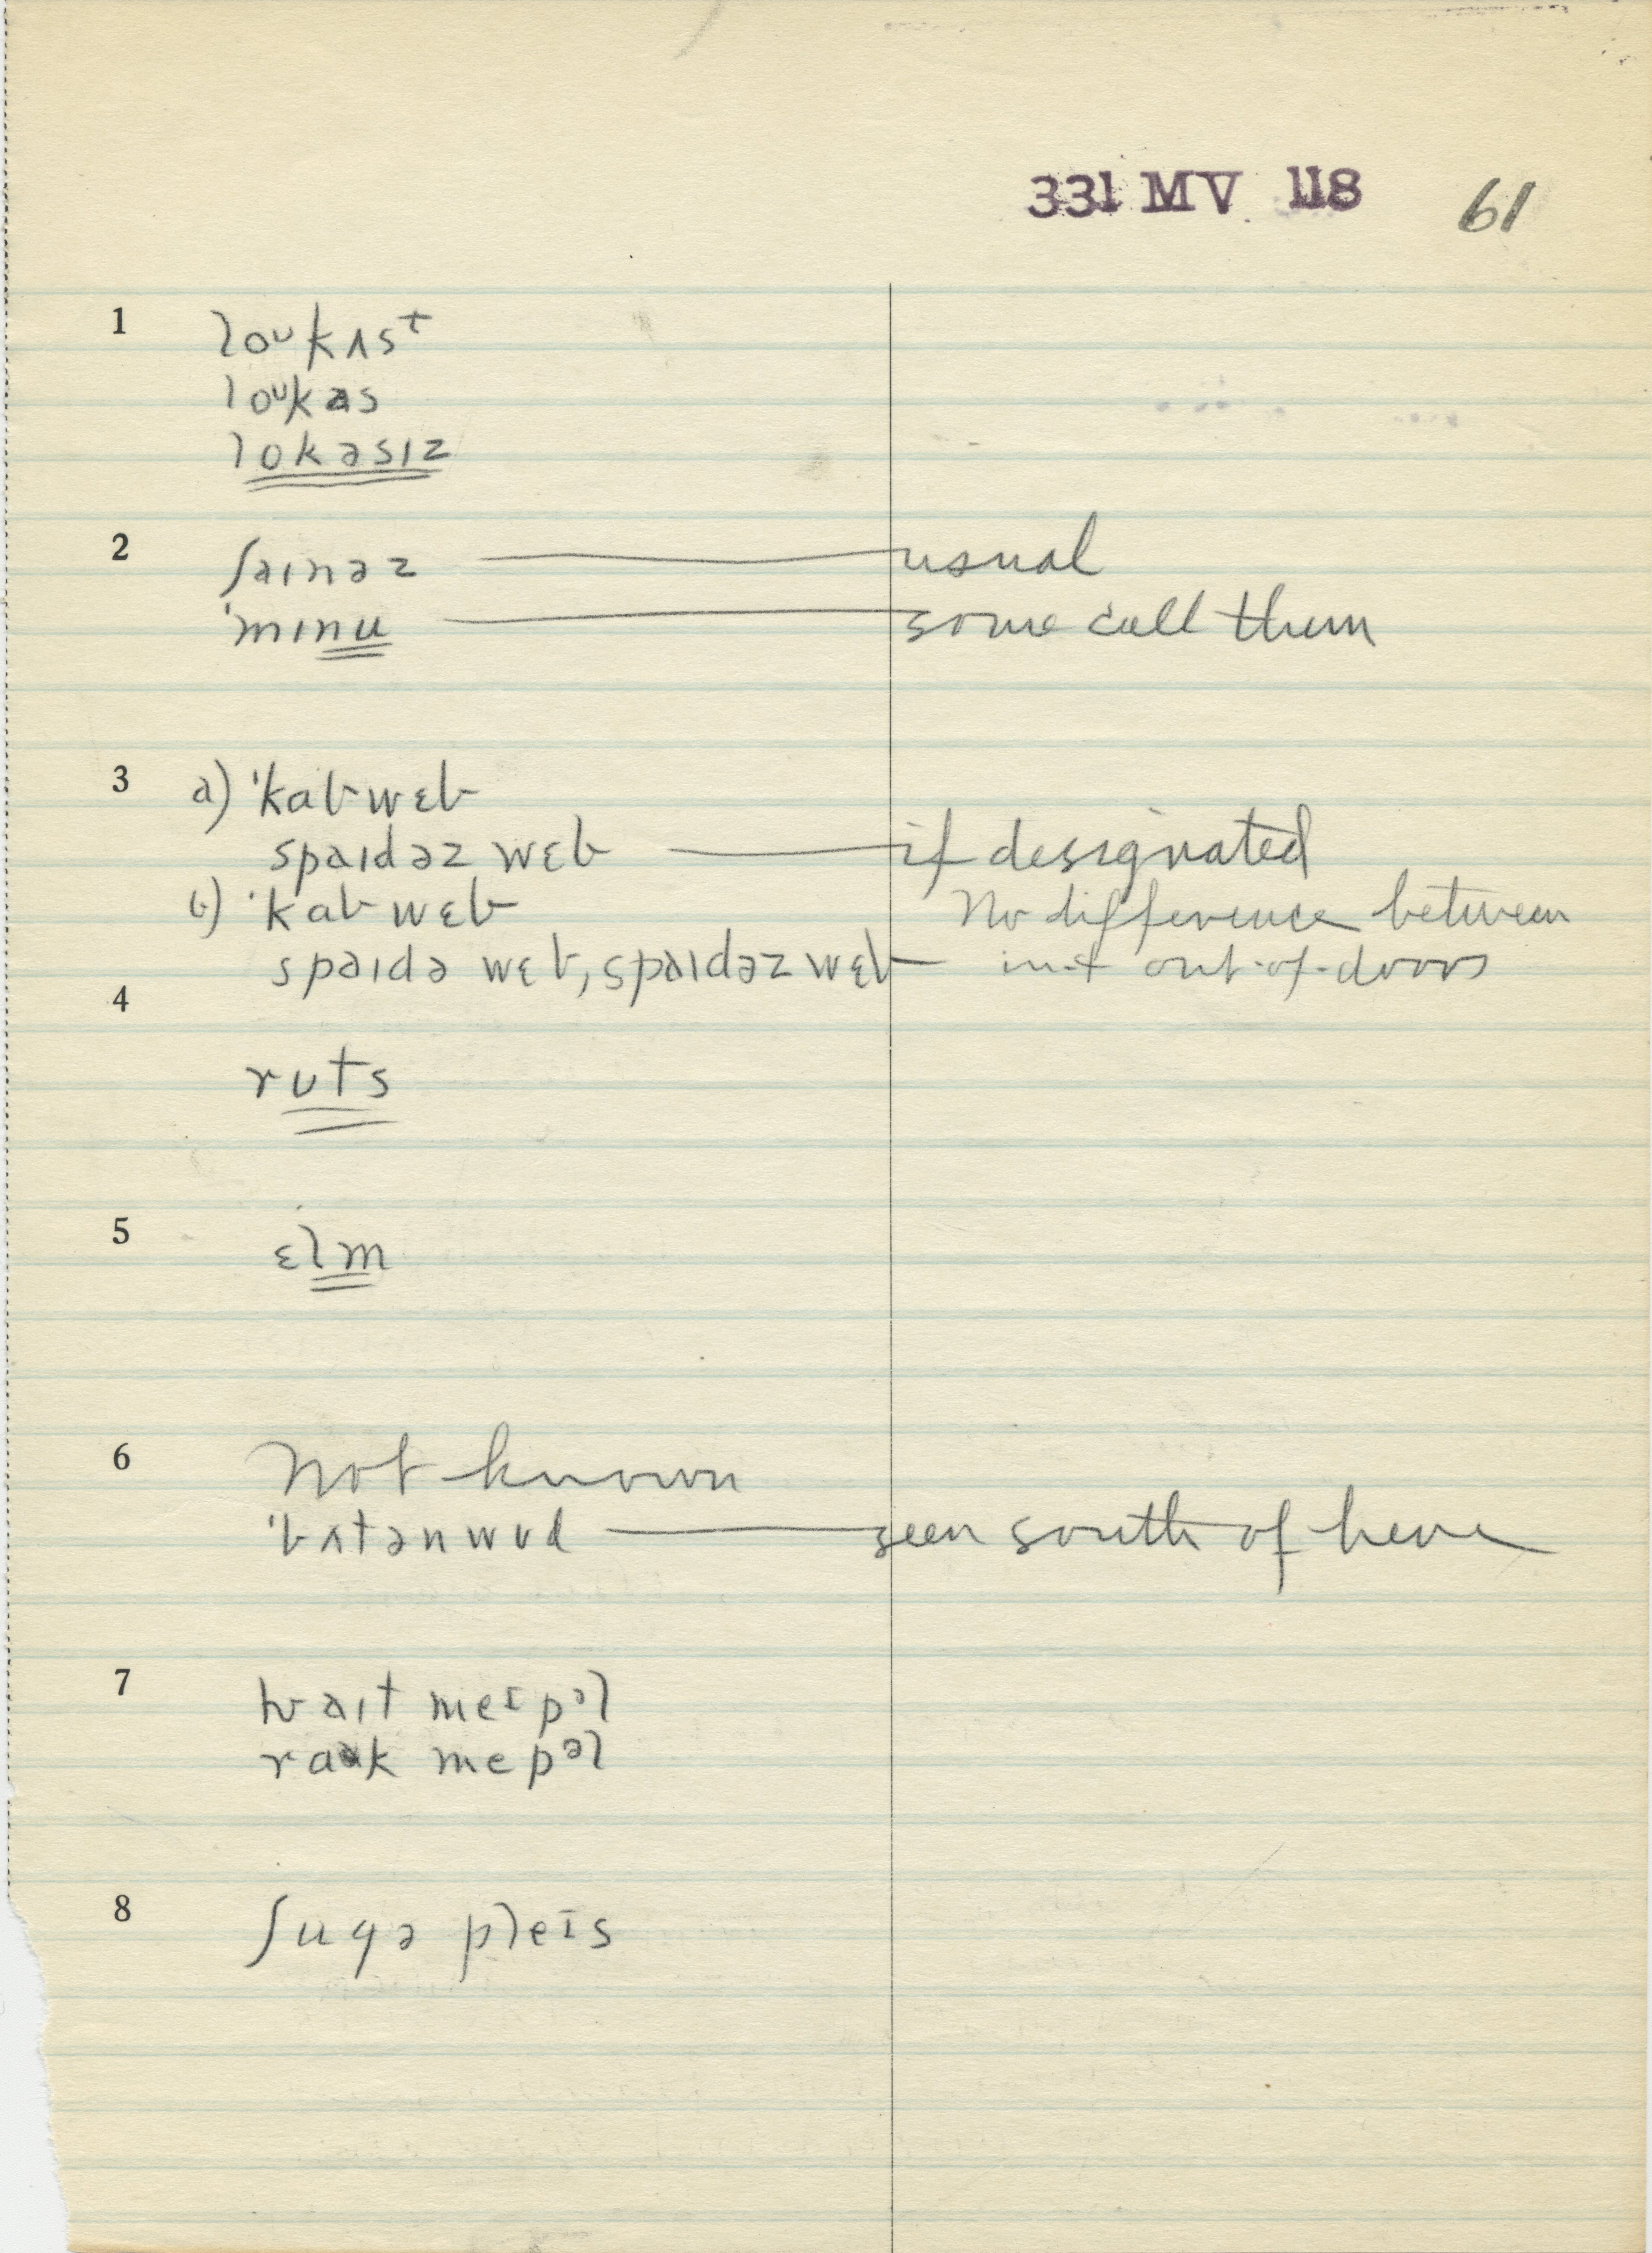 331 MV 118 61
1 loᴜkʌst
loᴜkəs
lokəsɪz
2 ʃaɪnəz — usual
ˈmɪnu — some call them
3 a) ˈkabwɛb
spaɪdəz wɛb — if designated
b) ˈkabwɛb No difference between
spaɪdə wɛb, spaɪdəz wɛb — in + out-of-doors
4
rᴜts
5 ɛlm
6 Not known
ˈbʌtənwᴜd — seen south of here
7 hwaɪt meɪpəl
rak mepəl
8 ʃugə pleɪs